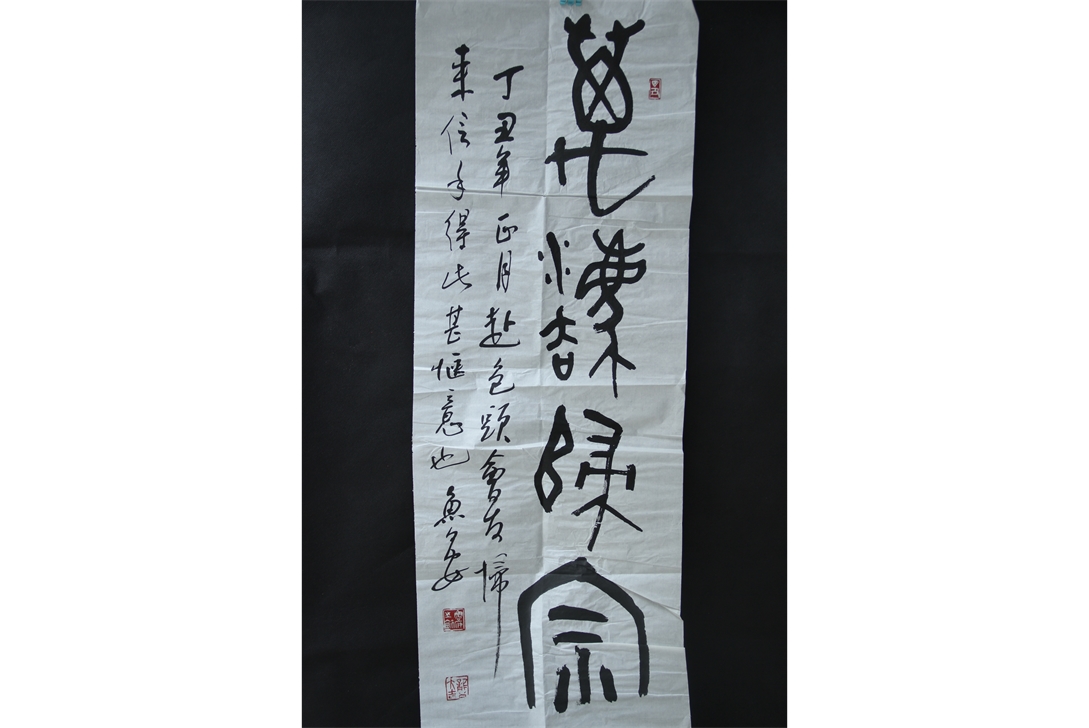 萬灋歸宗
丁丑年正月赴包頭會友歸
來信手得此甚愜意也 魚